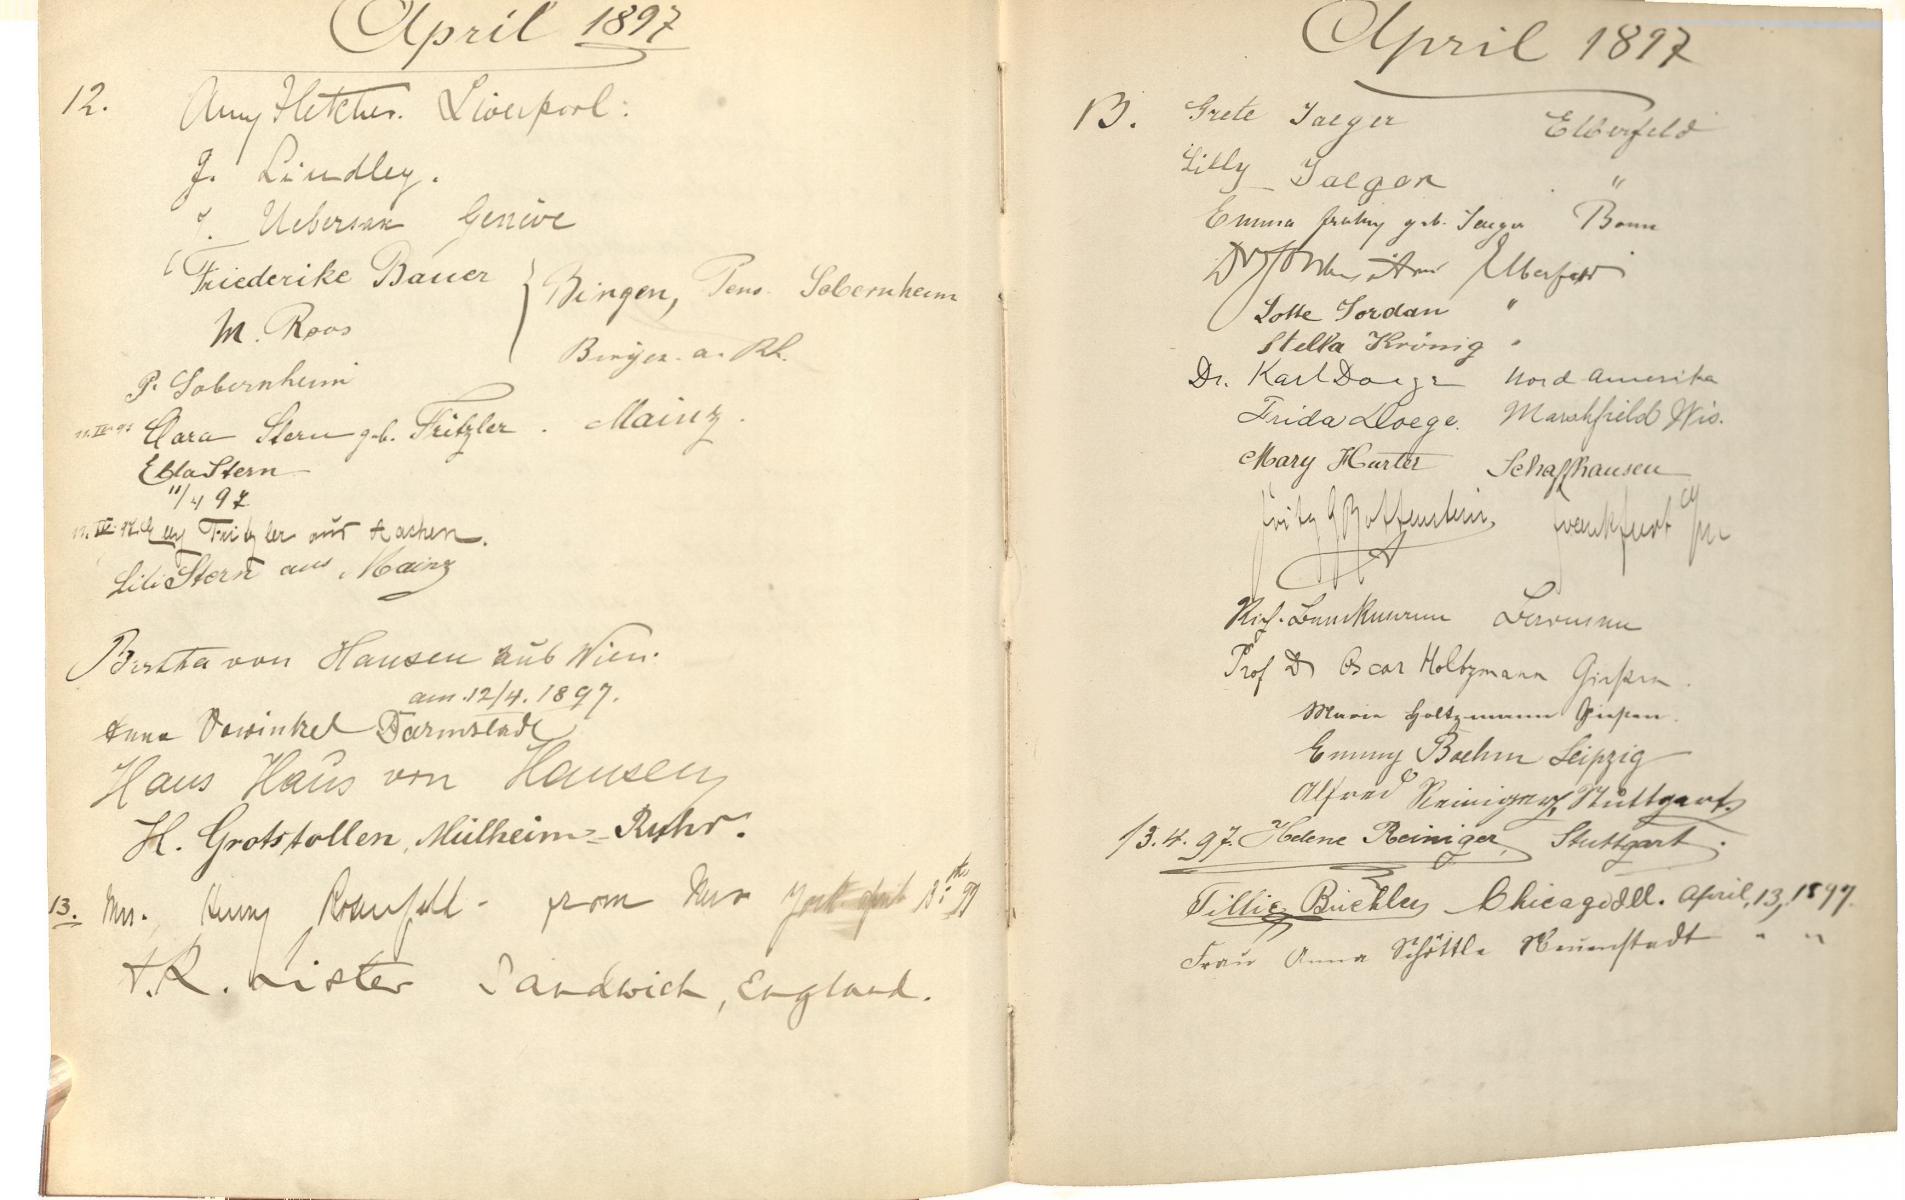 April 1897
12. Amy Fletcher. Liverpool.
J. Lindley.
Genève
Friederike Bauer } Bingen, Pens. Sobernheim
M. Roos
Bingen a. Rh.
P. Sobernheim
Clara Stern geb. Fritzler. Mainz.
Ella Stern
11/4 97
Fritzler aus Aachen.
Lili Stern aus Mainz
Bertha von Hausen aus Wien.
am 12/4. 1897.
Anna Vowinkel Darmstadt
Hans Haus von Hausen
H. Grotstollen, Mülheim-Ruhr.
13. Mrs. Henry Rosenfeld - from New York April 13th 97
A.R. Lister Sandwich, England.
April 1897
13. Grete Jaeger Elberfeld
Lilly Jaeger "
Emma geb. Jaeger Bonn
Dr Elberfeld
Lotte Jordan "
Stella Krönig "
Dr. Karl Doege Nord Amerika
Frida Doege. Marshfield Wis.
Mary Hurter Schaffhausen
Fritz Frankfurt a/m
Prof Dr Oscar Holtzmann Giessen.
Maria Holtzmann Giessen.
Emmy Boehm Leipzig
Alfred Reiniger, Stuttgart.
13.4.97. Helene Reiniger, Stuttgart.
Tillie Buehler Chicago Ill. April, 13, 1897.
Frau Anna Schöttle Neuenstadt " "